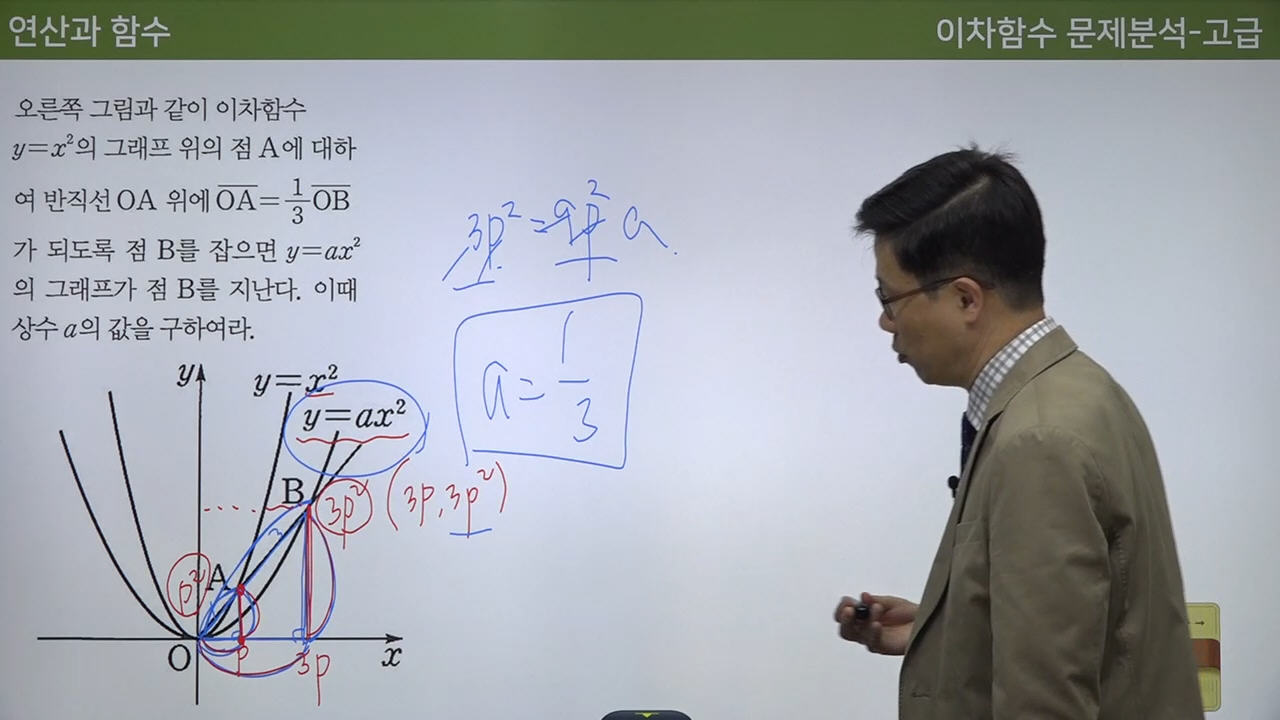 연산과 함수
이차함수 문제분석-고급
오른쪽 그림과 같이 이차함수
y=x²의 그래프 위의 점 A에 대하
여 반직선 OA 위에 OA=1/3 OB
가 되도록 점 B를 잡으면 y=ax²
의 그래프가 점 B를 지난다. 이때
상수 a의 값을 구하여라.
3p²=9p² a
a=1/3
y
y=x²
y=ax²
B
3p²
(3p, 3p²)
p²
A
O
p
3p
x